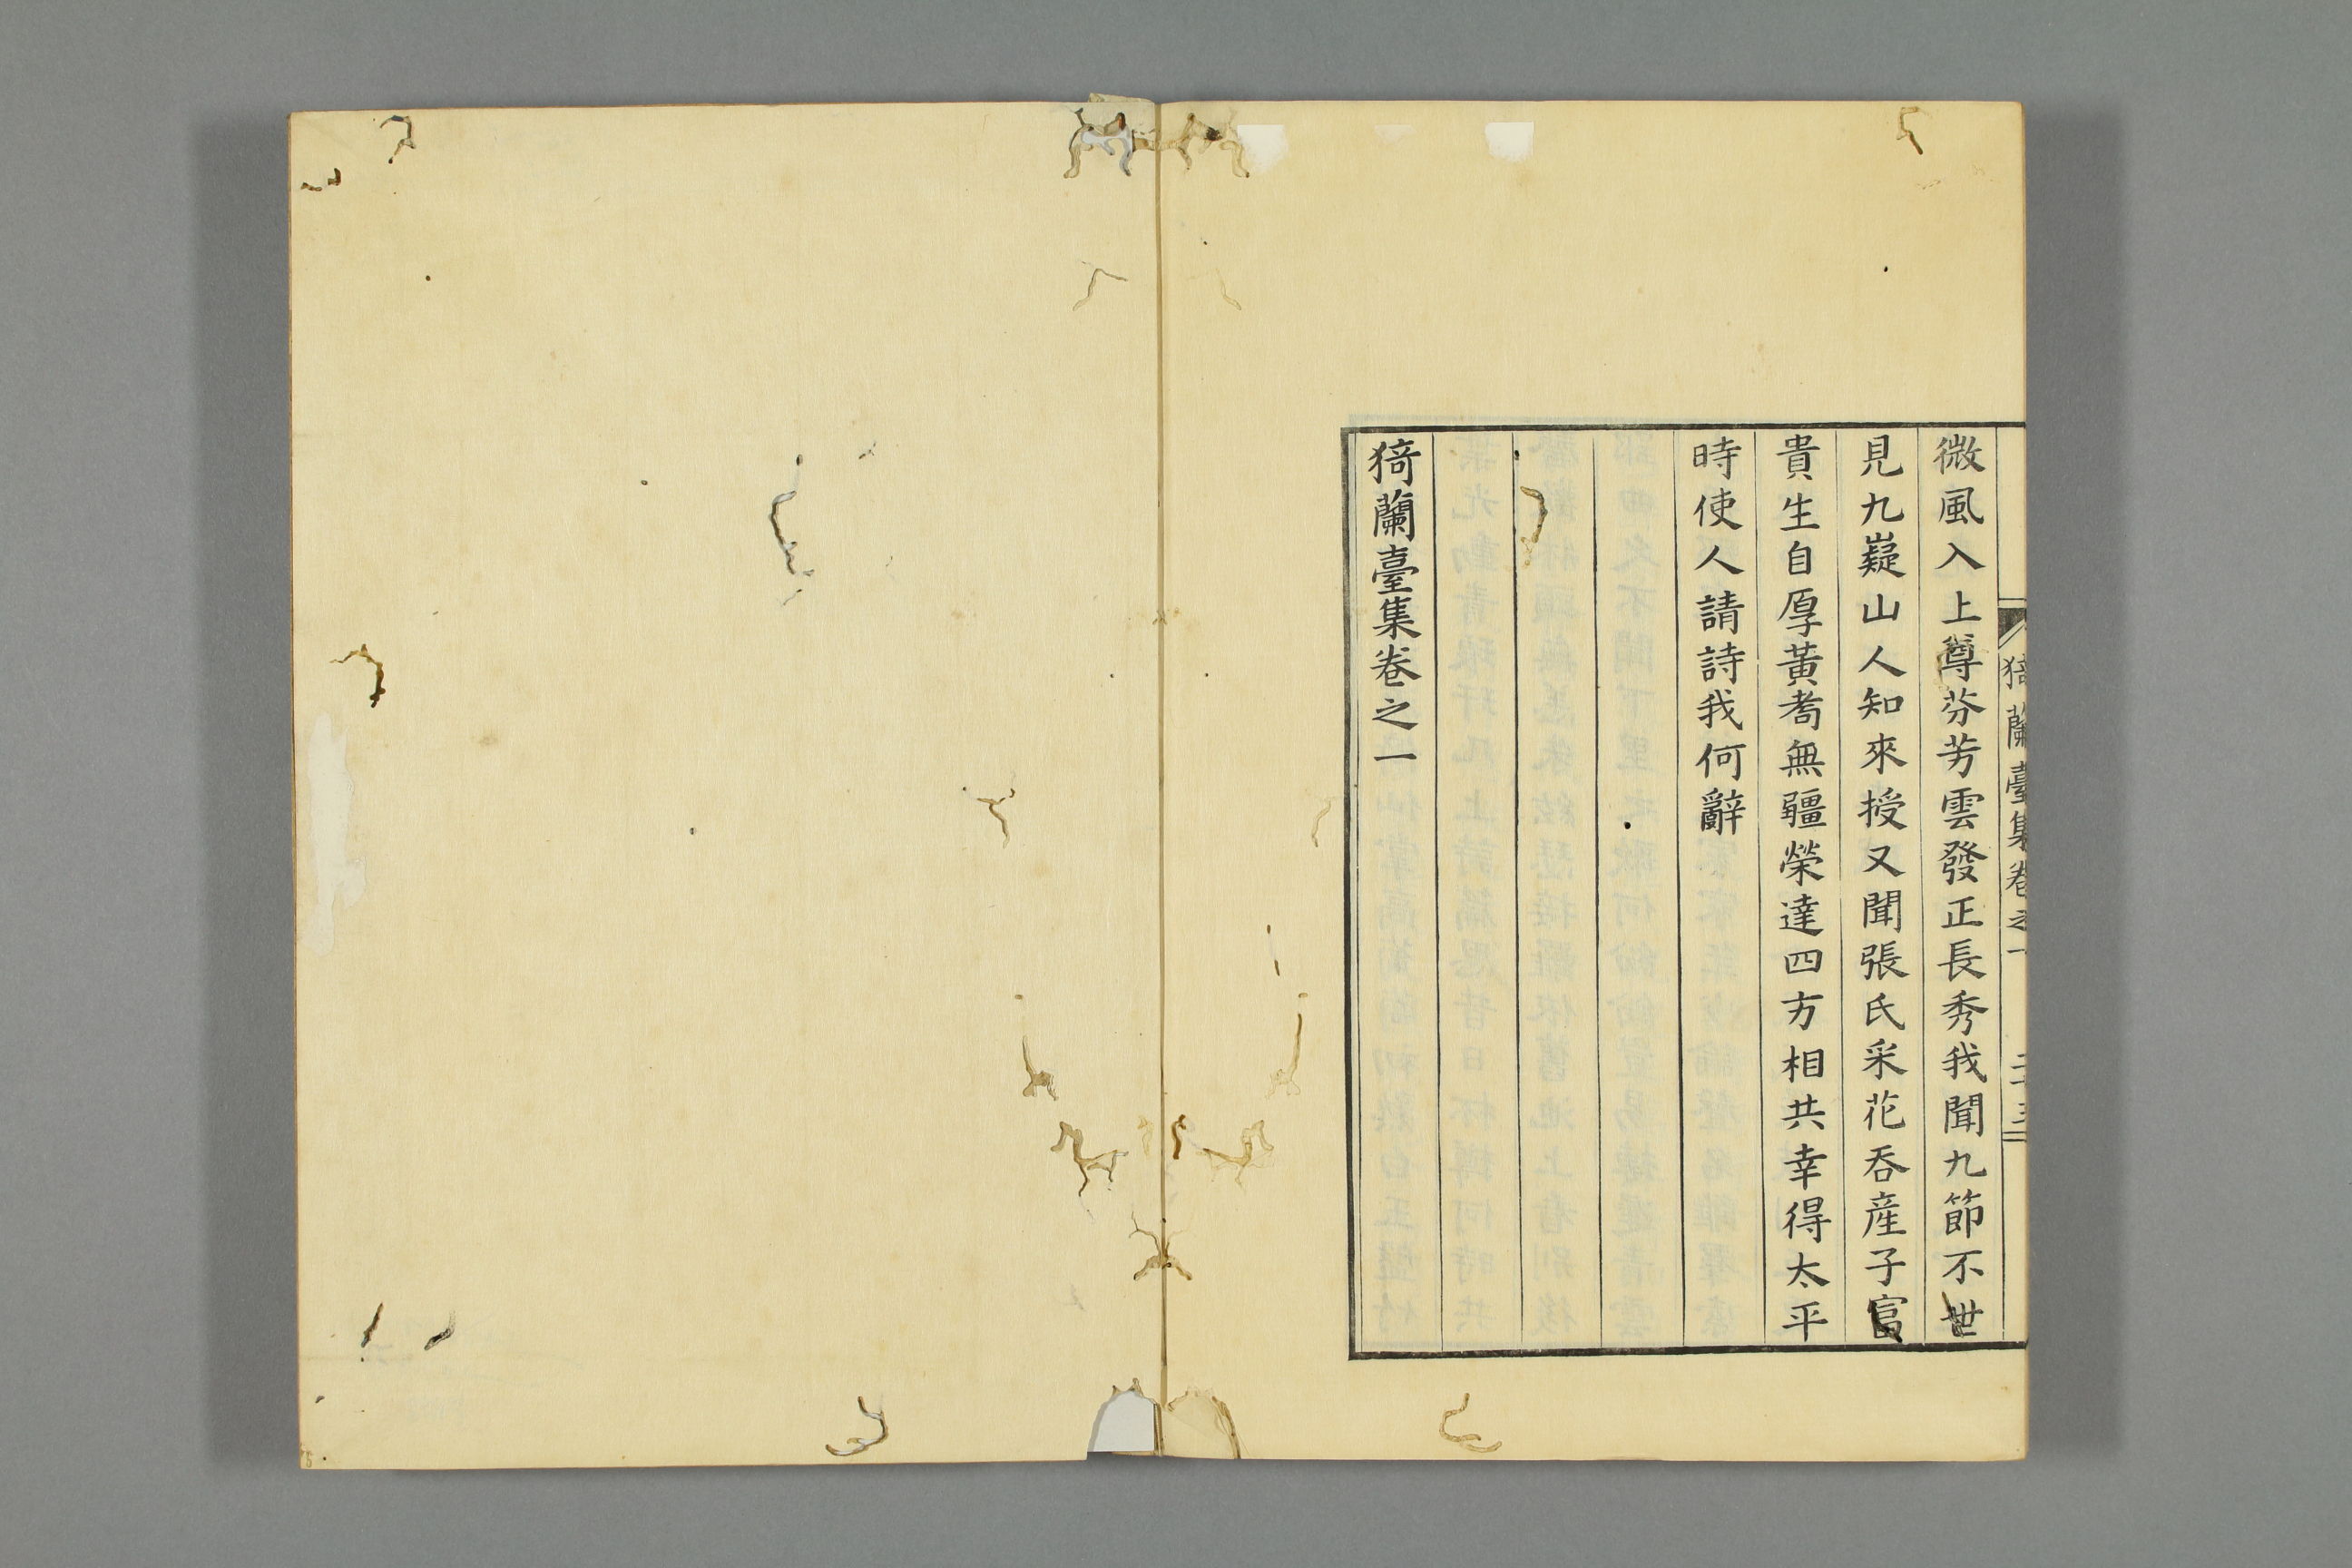 猗蘭臺集卷之一
二十三
微風入上尊芬芳雲發正長秀我聞九節不世
見九嶷山人知來授又聞張氏采花呑産子富
貴生自厚黃耇無疆榮達四方相共幸得太平
時使人請詩我何辭
猗蘭臺集卷之一